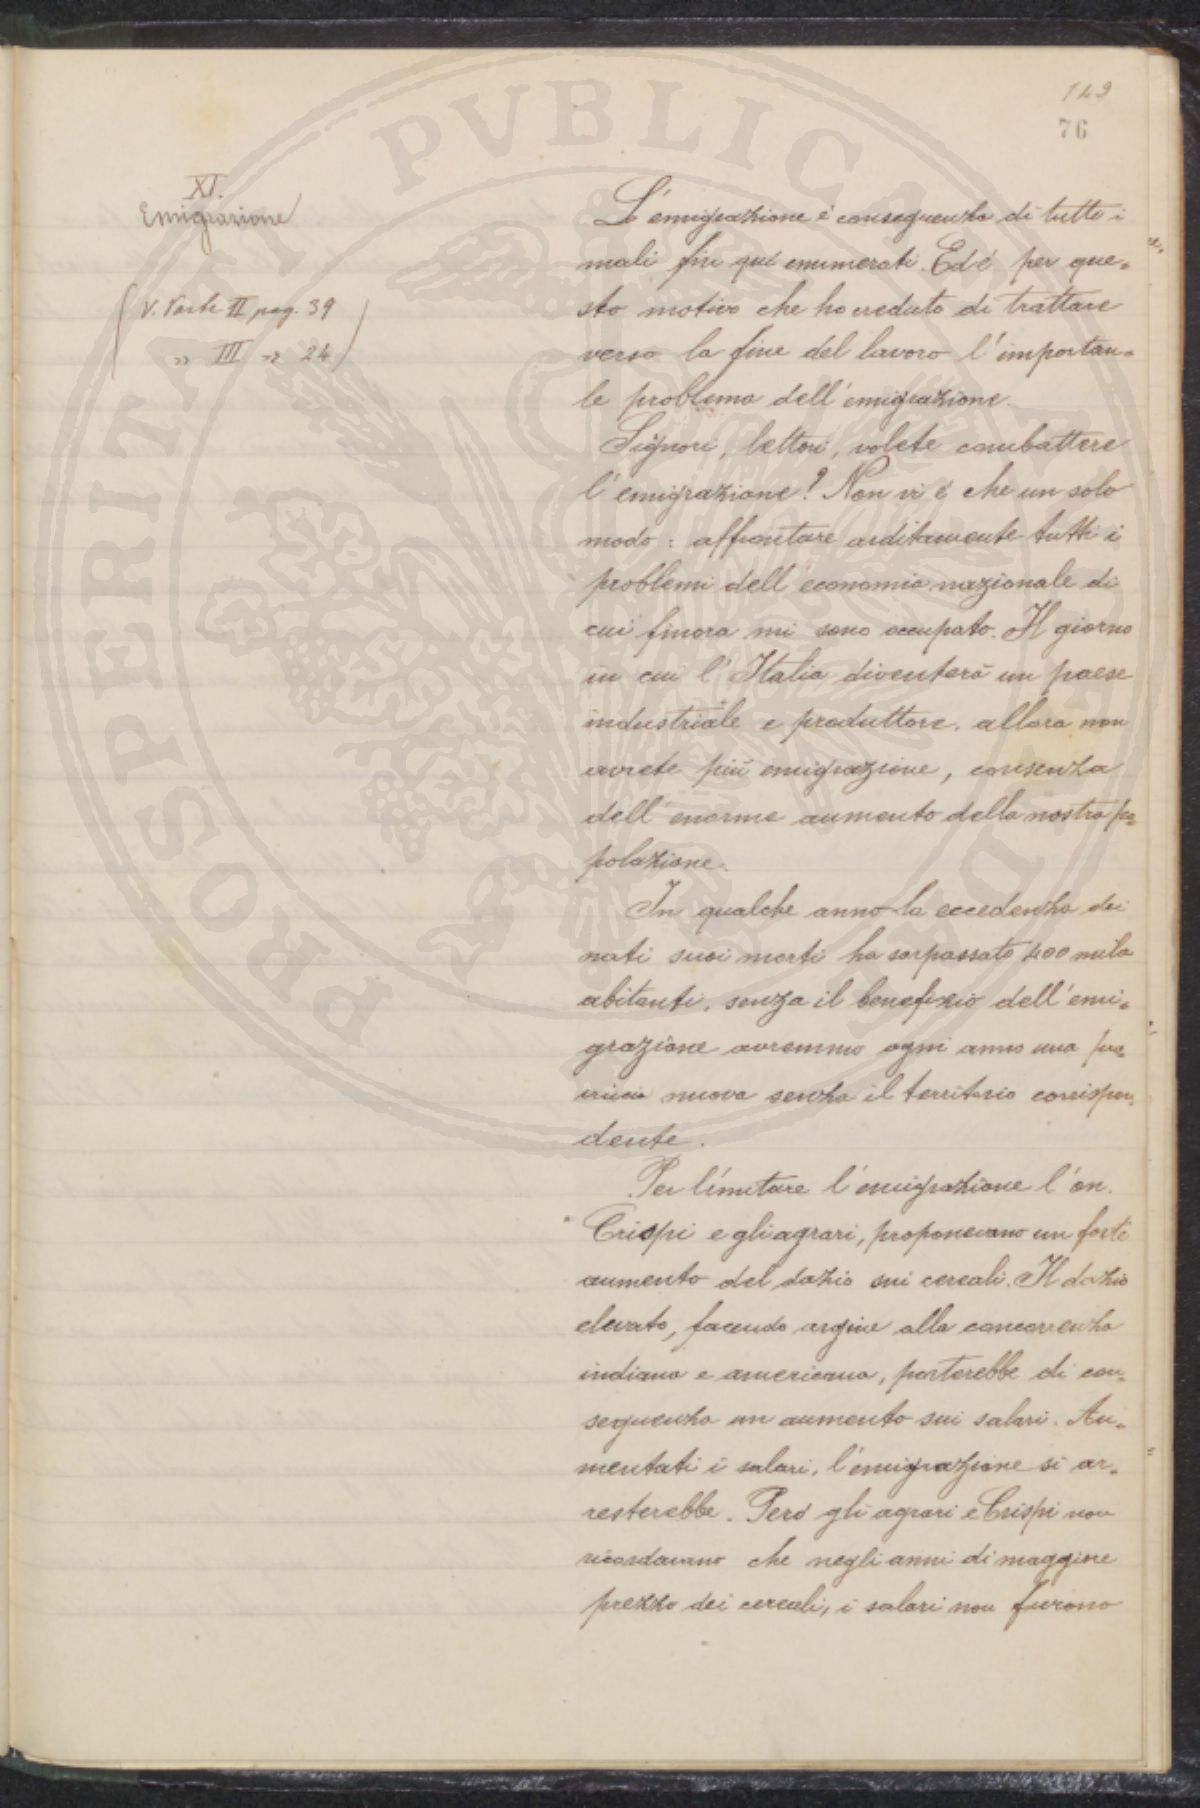 149
76
XI.
Emigrazione
(V. Parte II pag. 39
" III " 24)
L'emigrazione è conseguenza di tutti i
mali fin qui enumerati. Ed è per que=
sto motivo che ho creduto di trattare
verso la fine del lavoro l'importan=
te problema dell'emigrazione.
Signori, lettori, volete combattere
l'emigrazione? Non vi è che un solo
modo: affrontare arditamente tutti i
problemi dell'economia nazionale di
cui finora mi sono occupato. Il giorno
in cui l'Italia diventerà un paese
industriale e produttore, allora non
avrete più emigrazione, consenza
dell'enorme aumento della nostra po=
polazione.
In qualche anno la eccedenza dei
nati sui morti ha sorpassato 400 mila
abitanti, senza il benefizio dell'emi=
grazione avremmo ogni anno una pro=
vincia nuova senza il territorio corrispon=
dente.
Per limitare l'emigrazione l'on.
Crispi e gli agrari, proponevano un forte
aumento del dazio sui cereali. Il dazio
elevato, facendo argine alla concorrenza
indiana e americana, porterebbe di con=
seguenza un aumento sui salari. Au=
mentati i salari, l'emigrazione si ar=
resterebbe. Però gli agrari e Crispi non
ricordavano che negli anni di maggiore
prezzo dei cereali, i salari non furono
PROSPERITATI PVBLICAE